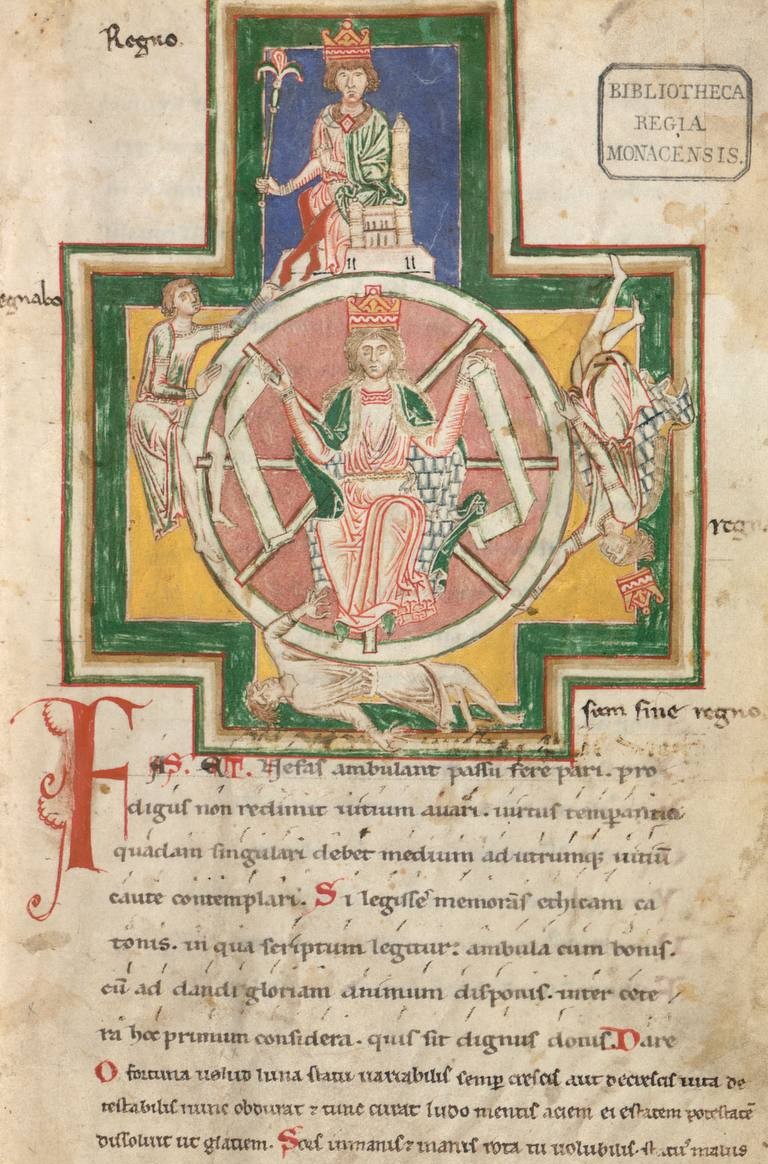 Regno
BIBLIOTHECA
REGIA
MONACENSIS.
egnabo
regn
sum sine regno
FAS. ET. Nefas ambulant passu fere pari. pro
digus non redimit uitium auari. uirtus temperantia
quadam singulari debet medium ad utrumq; uitiū
caute contemplari. Si legisse memoras ethicam ca
tonis. in qua scriptum legitur: ambula cum bonis.
cū ad dandi gloriam animum disponis. inter cete
ra hoc primum considera. quis sit dignus donis. Dare
O fortuna uelud luna statu uariabilis semp crescis aut decrescis uita de
testabilis nunc obdurat ⁊ tunc curat ludo mentis aciem egestatem potestatē
dissoluit ut glaciem. Sors inmanis ⁊ inanis rota tu uolubilis. statꝰ malus